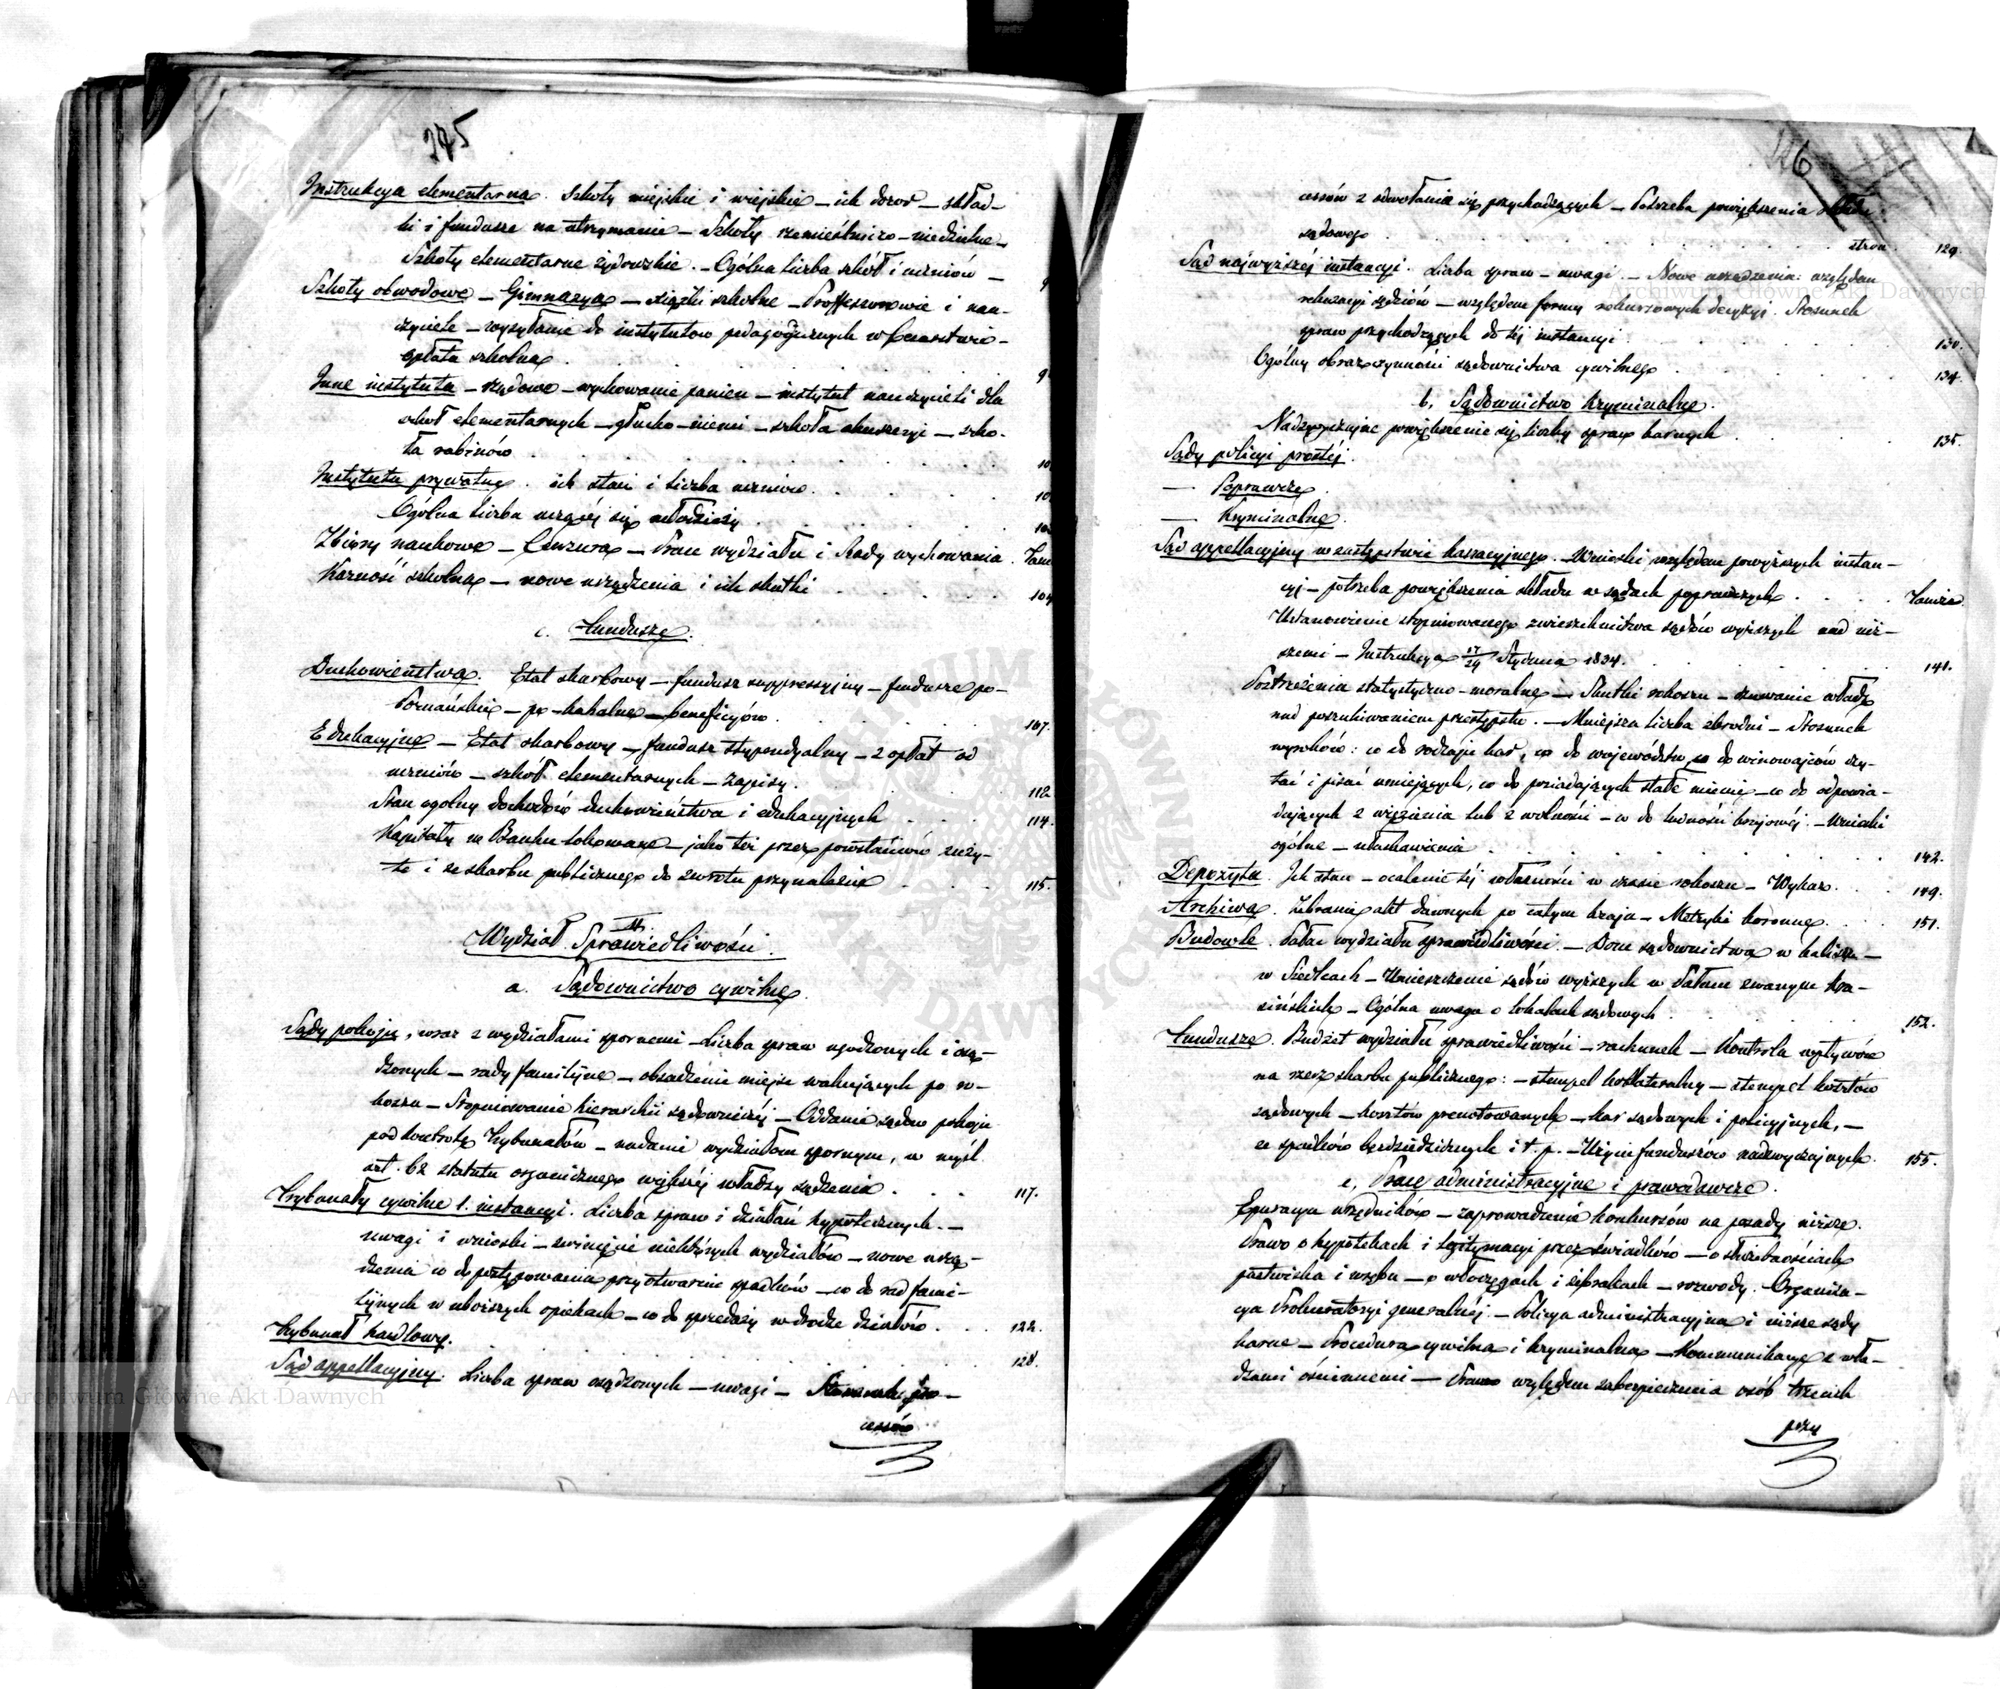 245
Instrukcya elementarna. Szkoły miejskie i wiejskie — ich dozór — skład-
ki i fundusze na utrzymanie — Szkoły rzemieślniczo-niedzielne —
Szkoły elementarne żydowskie. — Ogólna liczba szkół i uczniów —
Szkoły obwodowe — Gimnazya — książki szkolne — Professorowie i nau-
czyciele — wysyłanie do instytutów pedagogicznych w Cesarstwie —
opłata szkolna
Inne instytuta — rządowe — wychowanie panien — instytut nauczycieli dla
szkół elementarnych — głucho-niemi — szkoła akuszeryi — szko-
ła rabinów
Instytuta prywatne. ich stan i liczba uczniów
Ogólna liczba uczącej się młodzieży
Zbiory naukowe — Cenzura — Prace wydziału i Rady wychowania. Tamże
Karność szkolna — nowe urządzenia i ich skutki 104
c. Fundusze.
Duchowieństwa. Etat skarbowy — fundusz suppressyjny — fundusze po-
Poznańskie — po-kahalne — beneficyów 107.
Edukacyjne — Etat skarbowy — fundusz stypendyalny — z opłat od
uczniów — szkół elementarnych — zapisy. 112
Stan ogólny dochodów duchowieństwa i edukacyjnych 114.
Kapitały w Banku lokowane — jako też przez powstańców zuży-
te i ze skarbu publicznego do zwrotu przynależne 115.
II.
Wydział Sprawiedliwości.
a. Sądownictwo cywilne.
Sądy pokoju, wraz z wydziałami spornemi — Liczba spraw ugodzonych i osą-
dzonych — rady familijne — obsadzenie miejsc wakujących po ro-
koszu — Stopniowanie hierarchii sądowniczej — Oddanie sądów pokoju
pod kontrolę Trybunałów — nadanie wydziałom spornym, w myśl
art. 62 statutu organicznego większej władzy sądzenia 117.
Trybunały cywilne 1. instancyi. Liczba spraw i działań hypotecznych. —
uwagi i wnioski — zwinięcie niektórych wydziałów — nowe urzą-
dzenia co do postępowania przy otwarciu spadków — co do rad fami-
lijnych w uboższych opiekach — co do sprzedaży w drodze działów. 122.
Trybunał handlowy.
Sąd appellacyjny. Liczba spraw osądzonych — uwagi — Stosunek pro- 128.
cessów
126
cessów z odwołania się przychodzących — Potrzeba powiększenia składu
sądowego stron. 129.
Sąd najwyższej instancyi. Liczba spraw — uwagi — Nowe urządzenia: względem
rekuzacyi sędziów — względem formy rekursowych decyzyi. Stosunek
spraw przychodzących do tej instancyi 130.
Ogólny obraz czynności sądownictwa cywilnego 134.
b. Sądownictwo kryminalne.
Nadzwyczajne powiększenie się liczby spraw karnych 135.
Sądy policyi prostej.
— Poprawcze
— Kryminalne.
Sąd appellacyjny w zastępstwie kassacyjnego. — Wnioski względem powyższych instan-
cyj — potrzeba powiększenia składu w sądach poprawczych Tamże
Ustanowienie stopniowanego zwierzchnictwa sądów wyższych nad niż-
szemi — Instrukcya 17/29 Stycznia 1834. 141.
Postrzeżenia statystyczno-moralne — Skutki rokoszu — czuwanie władz
nad poszukiwaniem przestępstw. — Mniejsza liczba zbrodni — Stosunek
wyroków: co do rodzaju kar, co do województw, co do winowajców czy-
tać i pisać umiejących, co do posiadających stałe mienie — co do odpowia-
dających z więzienia lub z wolności — co do ludności krajowej. — Wnioski
ogólne — ułaskawienia 142.
Depozyta. Ich stan — ocalenie tej własności w czasie rokoszu — Wykaz. 149.
Archiwa. Zebranie akt dawnych po całym kraju — Metryki koronne. 151.
Budowle. Pałac wydziału sprawiedliwości. — Dom sądownictwa w Kaliszu —
w Siedlcach — Umieszczenie sądów wyższych w Pałacu zwanym Kra-
sińskich — Ogólna uwaga o lokalach sądowych 152.
Fundusze. Budżet wydziału sprawiedliwości — rachunek — Kontrola wpływów
na rzecz skarbu publicznego: — stempel kollateralny — stempel kosztów
sądowych — kosztów prenotowanych — kar sądowych i policyjnych, —
ze spadków bezdziedzicznych i t. p. — Użycie funduszów nadzwyczajnych. 155.
c, Prace administracyjne i prawodawcze.
Epuracya urzędników — zaprowadzenie konkursów na posady niższe.
Prawo o hypotekach i legitymacyi przez świadków — o służebnościach
pastwiska i wrębu — o włóczęgach i żebrakach — rozwody. Organiza-
cya Prokuratoryi generalnej. — Policya administracyjna i niższe sądy
karne — Procedura cywilna i kryminalna — Kommunikacye z wła-
dzami ościennemi — Prawo względem zabezpieczenia osób trzecich
przy
Archiwum Główne Akt Dawnych
Archiwum Główne Akt Dawnych
ARCHIWUM GŁÓWNE
AKT DAWNYCH